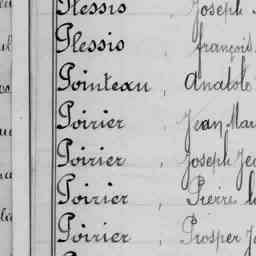 Plessis, Joseph
Plessis françois
Pointeau, Anatole
Poirier, Jean Mar
Poirier, Joseph Je
Poirier, Pierre
Poirier, Prosper J